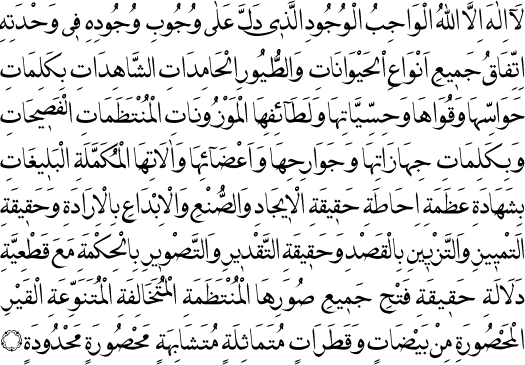 لَآ اِلٰهَ اِلَّا اللّٰهُ الْوَاجِبُ الْوُجُودِ الَّذِى دَلَّ عَلٰى وُجُوبِ وُجُودِهِ فِى وَحْدَتِهِ
اِتِّفَاقُ جَمِيعِ اَنْوَاعِ الْحَيْوَانَاتِ وَالطُّيُورِ الْحَامِدَاتِ الشَّاهِدَاتِ بِكَلِمَاتِ
حَوَاسِّهَا وَقُوَاهَا وَحِسِّيَّاتِهَا وَلَطَآئِفِهَا الْمَوْزُونَاتِ الْمُنْتَظَمَاتِ الْفَصِيحَاتِ
وَبِكَلِمَاتِ جِهَازَاتِهَا وَجَوَارِحِهَا وَاَعْضَآئِهَا وَاٰلَاتِهَا الْمُكَمَّلَةِ الْبَلِيغَاتِ
بِشَهَادَةِ عَظَمَةِ اِحَاطَةِ حَقِيقَةِ الْاِيجَادِ وَالصُّنْعِ وَالْاِبْدَاعِ بِالْاِرَادَةِ وَحَقِيقَةِ
التَّمْيِيزِ وَالتَّزْيِينِ بِالْقَصْدِ وَحَقِيقَةِ التَّقْدِيرِ وَالتَّصْوِيرِ بِالْحِكْمَةِ مَعَ قَطْعِيَّةِ
دَلَالَةِ حَقِيقَةِ فَتْحِ جَمِيعِ صُوَرِهَا الْمُنْتَظَمَةِ الْمُتَخَالِفَةِ الْمُتَنَوِّعَةِ الْغَيْرِ
الْمَحْصُورَةِ مِنْ بَيْضَاتٍ وَقَطَرَاتٍ مُتَمَاثِلَةٍ مُتَشَابِهَةٍ مَحْصُورَةٍ مَحْدُودَةٍ